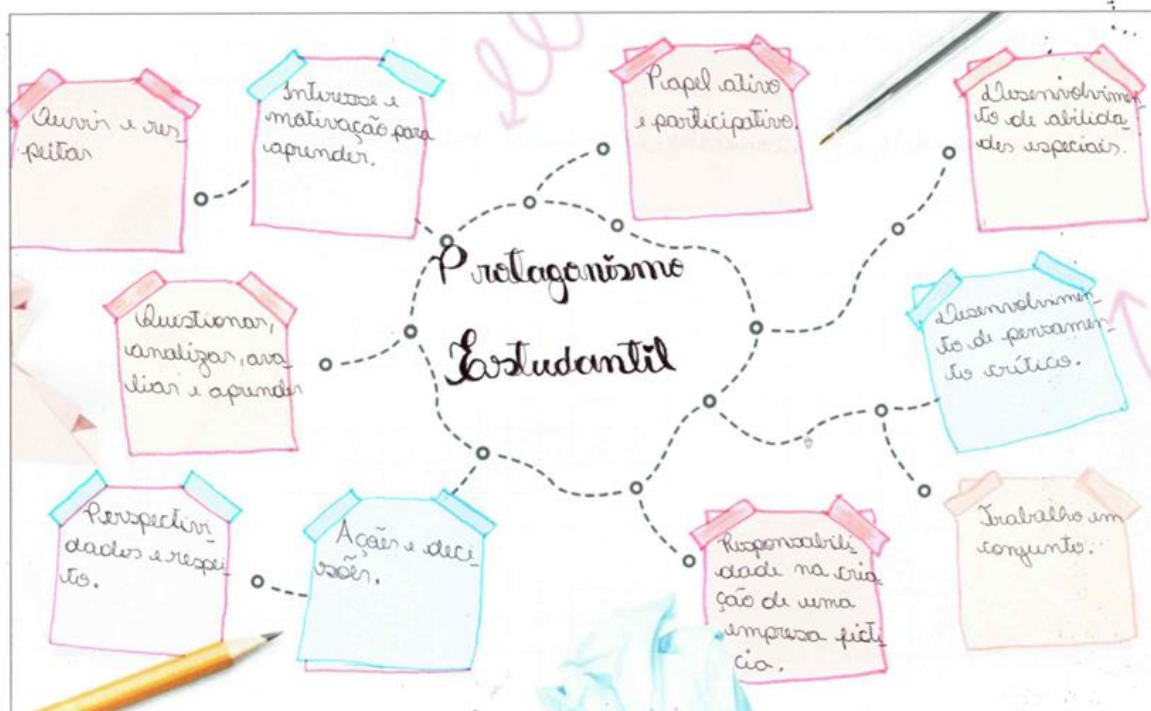 Ouvir e res-
peitar
Interesse e
motivação para
aprender.
Papel ativo
e participativo.
Desenvolvimen-
to de abilida-
des especiais.
Protagonismo
Estudantil
Questionar,
analizar, ava-
liar e aprender
Desenvolvimen-
to de pensamen-
to crítico.
Perspectivi-
dades e respei-
to.
Ações e deci-
sões.
Responsabili-
dade na cria-
ção de uma
empresa fictí-
cia.
Trabalho em
conjunto.